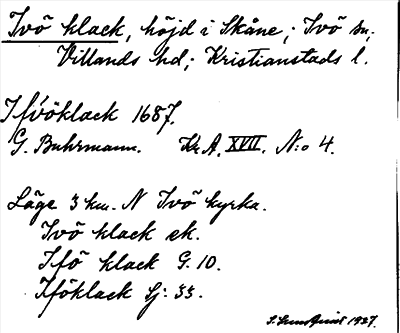 Ivö klack, höjd i Skåne; Ivö sn;
Villands hd; Kristianstads l.
Ifvöklack 1687.
G. Buhrmann. Kr A. XVII. N:o 4.
Läge 3 km. N Ivö kyrka.
Ivö klack ek.
Ifö klack G. 10.
Iföklack Lj: 55.
S. Sundquist 1927.